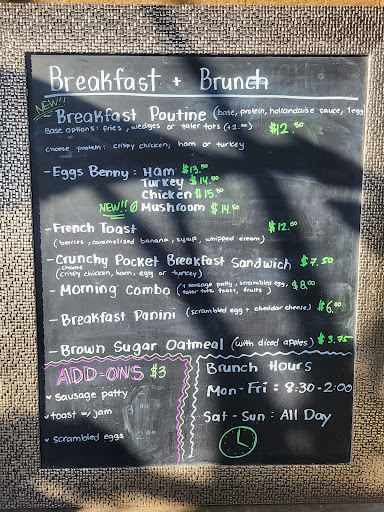 Breakfast + Brunch
NEW!!
Breakfast Poutine (base, protein, hollandaise sauce, 1 egg
Base options: fries, wedges or tater tots (+2.00) $12.50
choose protein: crispy chicken, ham or turkey
- Eggs Benny: Ham $13.50
Turkey $14.50
Chicken $15.50
NEW!! Mushroom $14.50
- French Toast $12.50
(berries, caramelized banana, syrup, whipped cream)
- Crunchy Pocket Breakfast Sandwich $7.50
(choose crispy chicken, ham, egg or turkey)
- Morning Combo (1 sausage patty, scrambled egg, $8.00
tater tots, toast, fruits)
- Breakfast Panini (scrambled egg + cheddar cheese) $6.00
- Brown Sugar Oatmeal (with diced apples) $3.75
ADD-ONS $3
sausage patty
toast w/ jam
scrambled eggs
Brunch Hours
Mon - Fri : 8:30 - 2:00
Sat - Sun : All Day